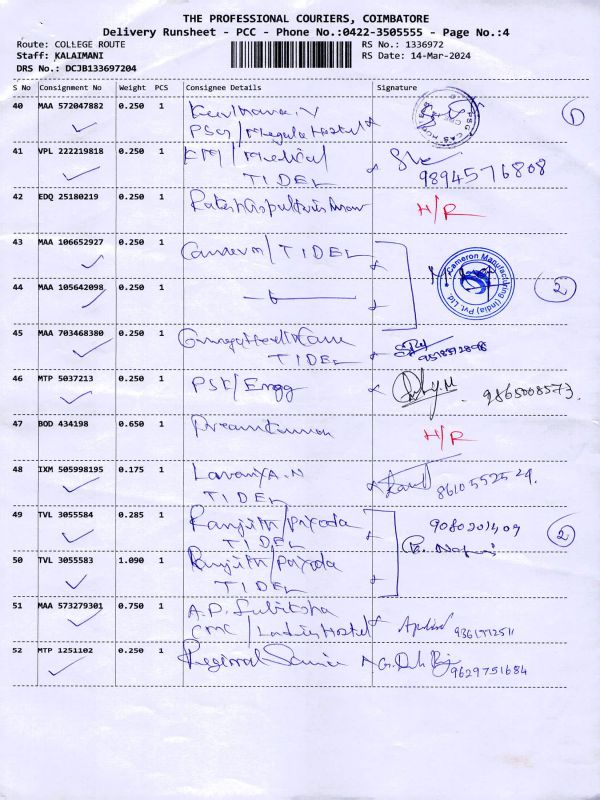 THE PROFESSIONAL COURIERS, COIMBATORE
Delivery Runsheet - PCC - Phone No.:0422-3505555 - Page No.:4
Route: COLLEGE ROUTE RS No.: 1336972
Staff: KALAIMANI RS Date: 14-Mar-2024
DRS No.: DCJB133697204
S No Consignment No Weight PCS Consignee Details Signature
40 MAA 572047882 0.250 1
PSG / Hostel
41 VPL 222219818 0.250 1 / Medical
TIDEL 9894576808
42 EDQ 25180219 0.250 1 H/R
43 MAA 106652927 0.250 1 / TIDEL
Cameron Manufacturing (India) Pvt. Ltd.
44 MAA 105642098 0.250 1 2
45 MAA 703468380 0.250 1
TIDEL
46 MTP 5037213 0.250 1 PSG/Engg 9865008573
47 BOD 434198 0.650 1 H/R
48 IXM 505998195 0.175 1 Lavanya.N 8610552524
TIDEL
49 TVL 3055584 0.285 1 Ranjith/ 9080201409 2
TIDEL
50 TVL 3055583 1.090 1 Ranjith/
TIDEL
51 MAA 573279301 0.750 1 A.P. Lubiksha
CMC / Ladies Hostel
52 MTP 1251102 0.250 1 Regional Service 9629751684